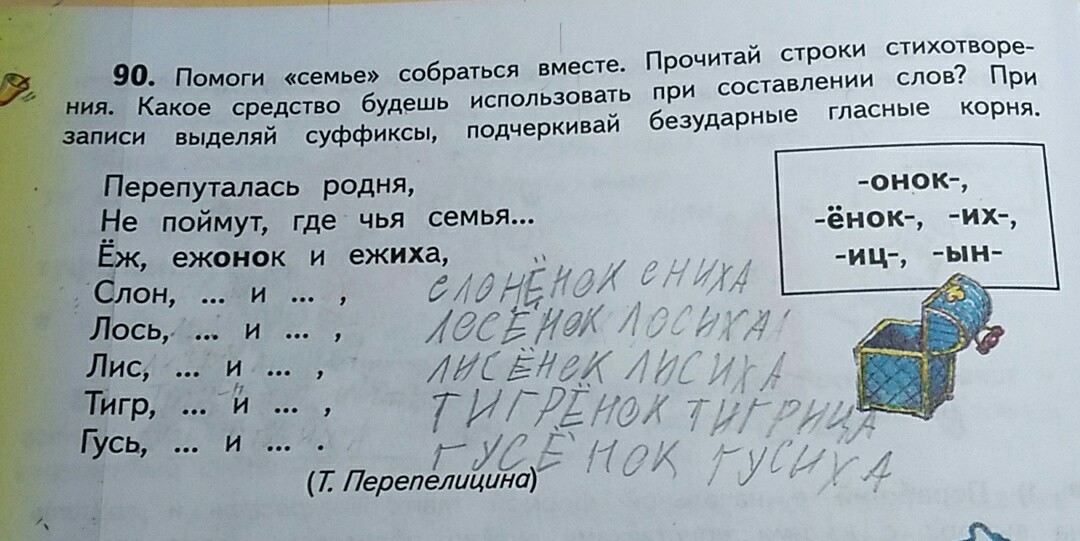 90. Помоги «семье» собраться вместе. Прочитай строки стихотворе-
ния. Какое средство будешь использовать при составлении слов? При
записи выделяй суффиксы, подчеркивай безударные гласные корня.
Перепуталась родня,
Не поймут, где чья семья...
Ёж, ежонок и ежиха,
Слон, ... и ... , СЛОНЁНОК СНИХА
Лось, ... и ... , ЛОСЁНОК ЛОСИХА
Лис, ... и ... , ЛИСЁНОК ЛИСИХА
Тигр, ... и ... , ТИГРЁНОК ТИГРИЦА
Гусь, ... и ... . ГУСЁНОК ГУСИХА
(Т. Перепелицина)
-онок-,
-ёнок-, -их-,
-иц-, -ын-